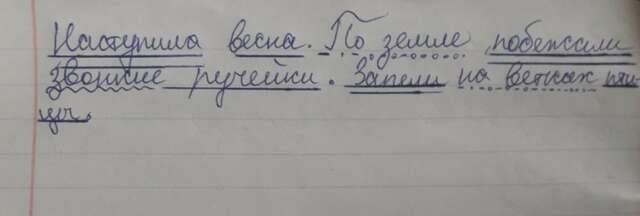 Наступила весна. По земле побежали
звонкие ручейки. Запели на ветках пти-
цы.